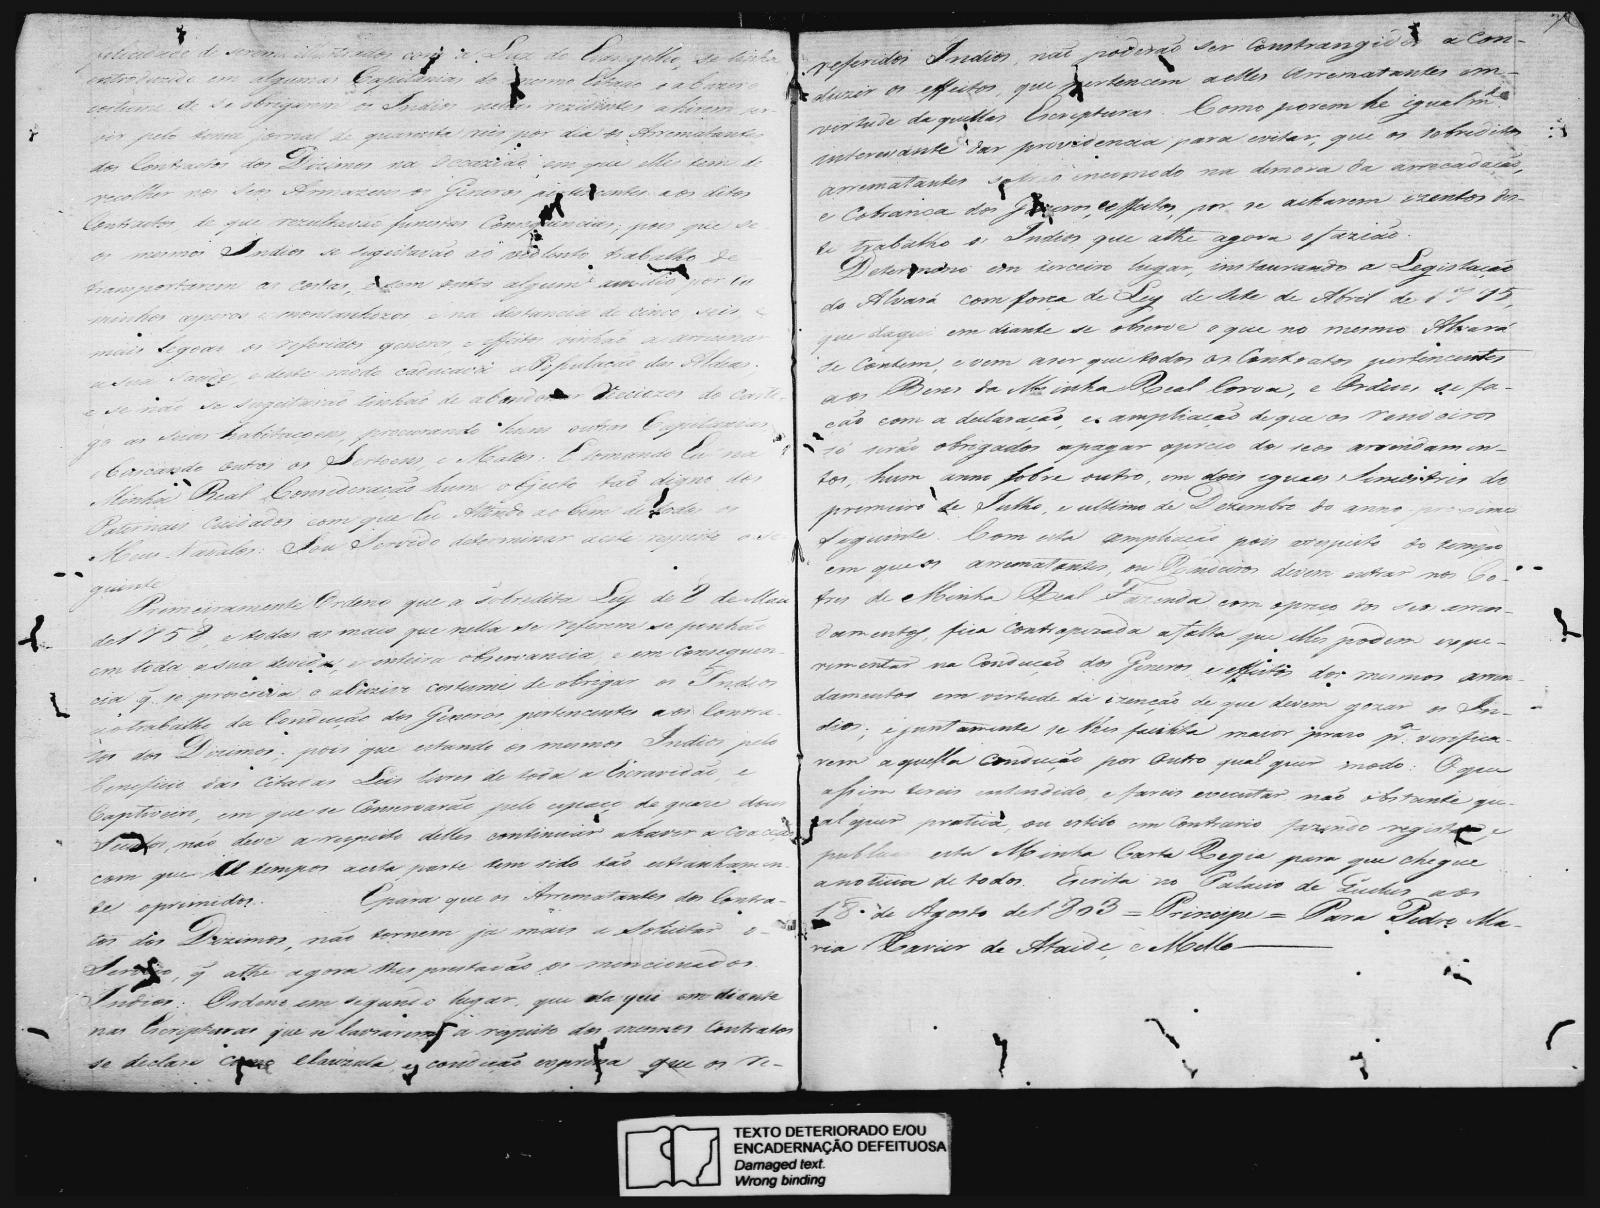 de serem illustrados com a Luz do Evangelho, se tinha
introduzido em algumas Capitanias do mesmo Estado o abuzivo
costume de se obrigarem os Indios nellas rezidentes a hirem ser-
vir pelo tenue jornal de quarenta reis por dia os Arrematantes
dos Contractos dos Dizimos na occazião, em que elles tem de
recolher nos seos Armazens os Generos pertencentes aos ditos
Contractos de que rezultavão funestas Consequencias; pois que se
os mesmos Indios se sugeitavão ao violento trabalho de
transportarem as costas, e sem outro algum auxilio por ca
minhos asperos e montanhozos, e na distancia de cinco, seis, e
mais legoas os referidos generos, e effeitos vinhão a arruinar
a sua saude, e deste modo a População das Aldeas.
e se não se sugeitavão tinhão de abandonar do casti-
go as suas habitacoens, procurando huns outras Capitanias
buscando outros os Sertoens, e Mattos. E tomando Eu na
Minha Real Consideração hum objecto tão digno dos
Paternaes cuidados com que Eu Attendo ao bem de todos os
Meus Vassalos: Sou Servido determinar a este respeito o se
guinte
Primeiramente Ordeno que a sobredita Ley de 8 de Maio
de 1758, e todas as mais que nella se referem se ponhão
em toda a sua devida, e inteira observancia, e em consequen-
cia q. se proscreva o abuzivo costume de obrigar os Indios
ao trabalho da Conducção dos Generos pertencentes aos Contra-
tos dos Dizimos; pois que estando os mesmos Indios pelo
beneficio das citadas Leis livres de toda a Escravidão, e
Captiveiro, em que se Conservarão pelo espaço de quaze dous
Seculos, não deve a respeito delles continuar a haver a coacção
com que de tempos a esta parte tem sido tão estranhamen-
te oprimidos. E para que os Arrematantes dos Contra-
tos dos Dizimos, não tornem ja mais a Solicitar o
Serviço, q athe agora lhes prestavão os mencionados
Indios: Ordeno em segundo lugar, que da qui em diante
nas Escripturas que se lavrarem a respeito dos mesmos Contratos
se declare como clauzula, e condicção expressa que os re-
referidos Indios, não poderão ser Constrangidos a con-
duzir os effeitos, que pertencem a elles Arrematantes em-
virtude daquellas Escripturas. Como porem he igualm.te
interessante dar providencia para evitar, que os sobreditos
arrematantes sofrão incomodo na demora da arrecadação,
e Cobranca dos Generos, e effeitos, por se acharem izentos des-
te trabalho os Indios que athe agora o fazião.
Determino em terceiro lugar, instaurando a Legislação
do Alvará com força de Ley de Sete de Abril de 1775,
que daqui em diante se observe o que no mesmo Alvará
se contem, e vem a ser que todos os Contratos pertencentes
aos Bens da Minha Real Coroa, e Ordens se fa-
ção com a declaração, e ampliação de que os rendeiros
só serão obrigados a pagar o preco do seos arrendamen-
tos, hum anno sobre outro, em dois iguaes Simestres do
primeiro de Julho, e ultimo de Dezembro do anno proximo
seguinte. Com esta ampliação pois a respeito do tempo
em que os arrematantes, ou Rendeiros devem entrar nos Co-
fres de Minha Real Fazenda com o preco dos seos arren-
damentos, fica contrapezada a falta que elles podem expe-
rimentar na Conducão dos Generos, e effeitos dos mesmos arren-
damentos em virtude da izencão de que devem gozar os In-
dios; e juntamente se lhes facilita maior prazo p.ª verifica-
rem aquella conducão por outro qual quer modo: O que
assim tereis entendido e fareis executar não obstante qu-
al quer pratica, ou estilo em contrario fazendo registar e
publicar esta Minha Carta Regia para que chegue
a noticia de todos. Escrita no Palacio de Queluz aos
18 de Agosto de 1803 = Principe = Para Pedro Ma-
ria Xavier de Ataide, e Mello
TEXTO DETERIORADO E/OU
ENCADERNAÇÃO DEFEITUOSA
Damaged text.
Wrong binding